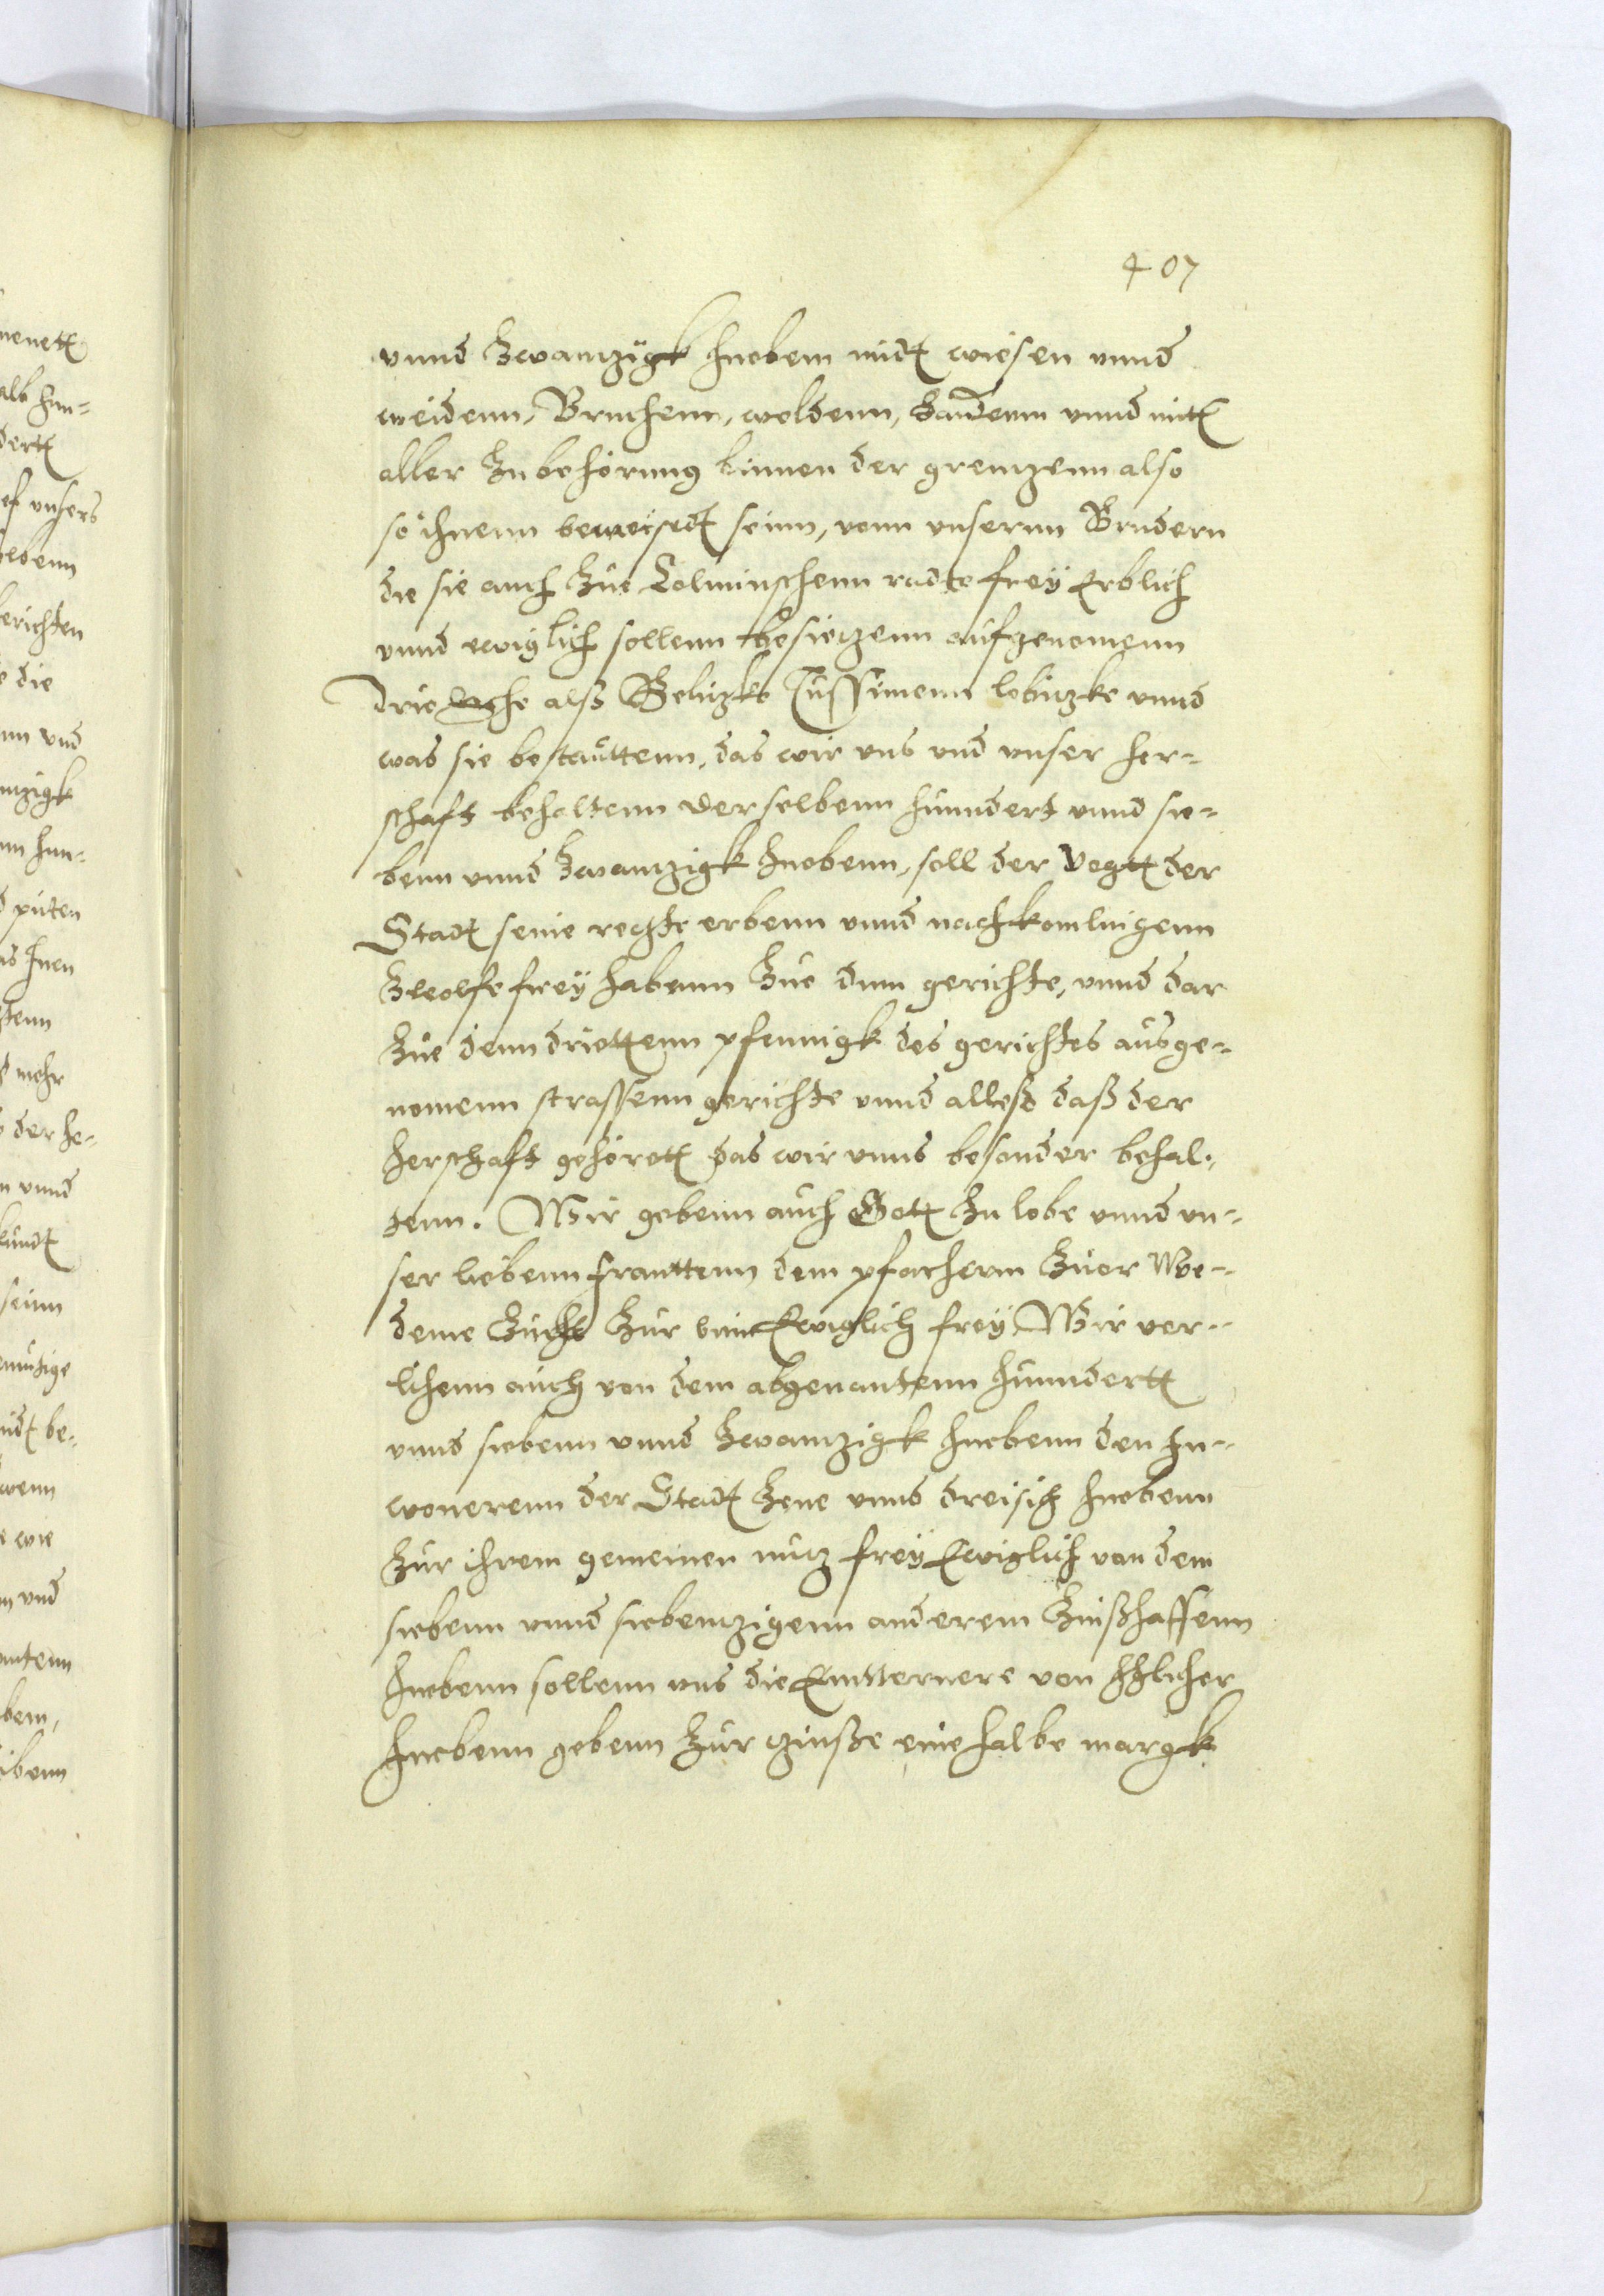 407
vnnd Zwantzigk Huebenn midt wiesen vnnd
weidenn, Bruchenn, weldenn, Heidenn vnnd mitt
aller Zubehörung binnen der grentzenn also
so ihnenn beweisedt seinn, vonn vnsernn Brudern
die sie auch Zue Colmischenn radte freÿ Erblich
vnnd ewiglich sollenn besietzenn ausgenomenn
drie alß Belitzke lobitzke vnnd
was sie bestauttenn, das wir vns vnd vnser her-
schaft behaltenn derselbenn hunndert vnnd sie-
benn vnnd Zwantzigk Huebenn, soll der Vogtt der
Stadt seine rechte erbenn vnnd nachkomlingenn
Zwolfe freÿ habenn Zue dem gerichte, vnnd dar
Zue denn driettenn pfennigk des gerichtes ausge-
nomenn strassenn gerichte vnnd alleß daß der
herschaft gehörett das wir vnns besonder behal-
tenn. Wir gebenn auch Gott Zu lobe vnnd vn-
ser liebenn frauttenn dem pfarhernn Zuor We-
deme Ewiglich freÿ Wir ver-
lihenn auch von dem abgenantenn hunndertt
vnnd siebenn vnnd Zwantzigk Huebenn den In-
wonerenn der Stadt Zene vnnd dreisich Huebenn
Zur ihrem gemeinen nutz freÿ Ewiglich von dem
siebenn vnnd siebentzigenn anderenn Zinßhaffenn
Huebenn sollenn vns die von itzlicher
Huebenn gebenn Zur zinße eine halbe margk